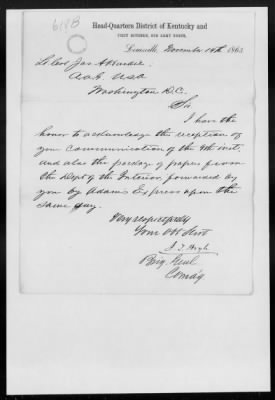 618 B
Head-Quarters District of Kentucky and
FIRST DIVISION, 23D ARMY CORPS,
Louisville, November 14th 1863
Lt Col Jas A Hardie
A.A.G. USA
Washington D.C.
Sir
I have the
honor to acknowledge the reception of
your communication of the 4th inst.
and also the package of papers from
the Dept of the Interior, forwarded by
you by Adams Express upon the
same day.
Very respectfully
Your Obt Servt
J. T. Boyle
Brig Genl
Comd'g